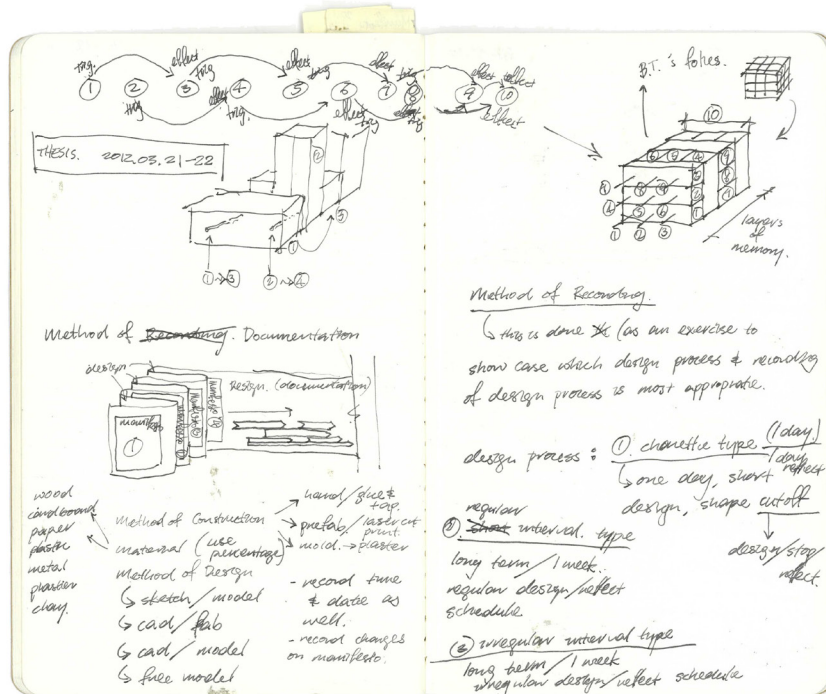 trig. effect trig effect trig effect trig effect effect
① ② ③ ④ ⑤ ⑥ ⑦ ⑧ ⑨ ⑩
trig effect trig. effect trig effect
THESIS. 2012.03.21-22
②
① ③
①→③ ②→④
Method of Recording. Documentation
design
Design. (documentation)
manifesto
①
wood
cardboard
paper
plastic
metal
plaster
clay.
Method of Construction
material (use percentage)
Method of Design
↳ sketch/model
↳ cad/fab
↳ cad/model
↳ free model
hand/glue &
prefab./lasercut
print.
mold. → plaster
- record time
& date as
well.
- record changes
on manifesto.
B.T.'s folies.
⑩
① ② ③
layers
of
memory.
Method of Recording.
↳ this is done (as an exercise to
show case which design process & recording
of design process is most appropriate.
design process : ① charette type (1 day)
1 day reflect
↳ one day, short
design, shape cutoff
design/stop/
reflect.
regular
② short interval. type
long term/1 week.
regular design/reflect
schedule
③ irregular interval type
long term/1 week
irregular design/reflect schedule